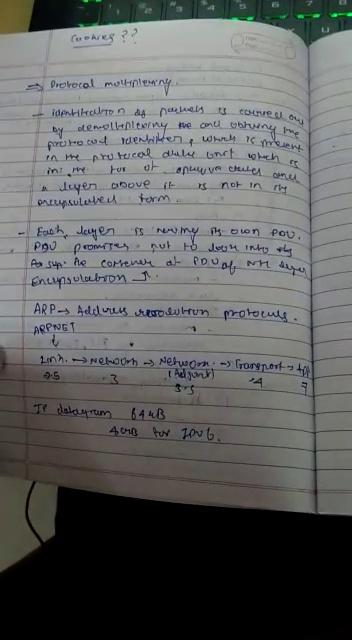 Cookies ??
⇒ Protocol multiplexing.
- identification of packets is carried out
by demultiplexing the and obtaing the
protocol identifier, which is present
in the protocol data unit which is
in the for of opaque data and
a layer above it is not in its
encapsulated form.
- Each layer is having its own PDU.
PDU promises not to look into the
the content of PDU of Nth layer
Encapsulation
ARP → Address resolution protocols.
ARPNET
Link → Network → Network → Transport → App
2.5 3 (Adjunct) 4 7
3.5
IP datagram 64kB
4GB for IPV6.